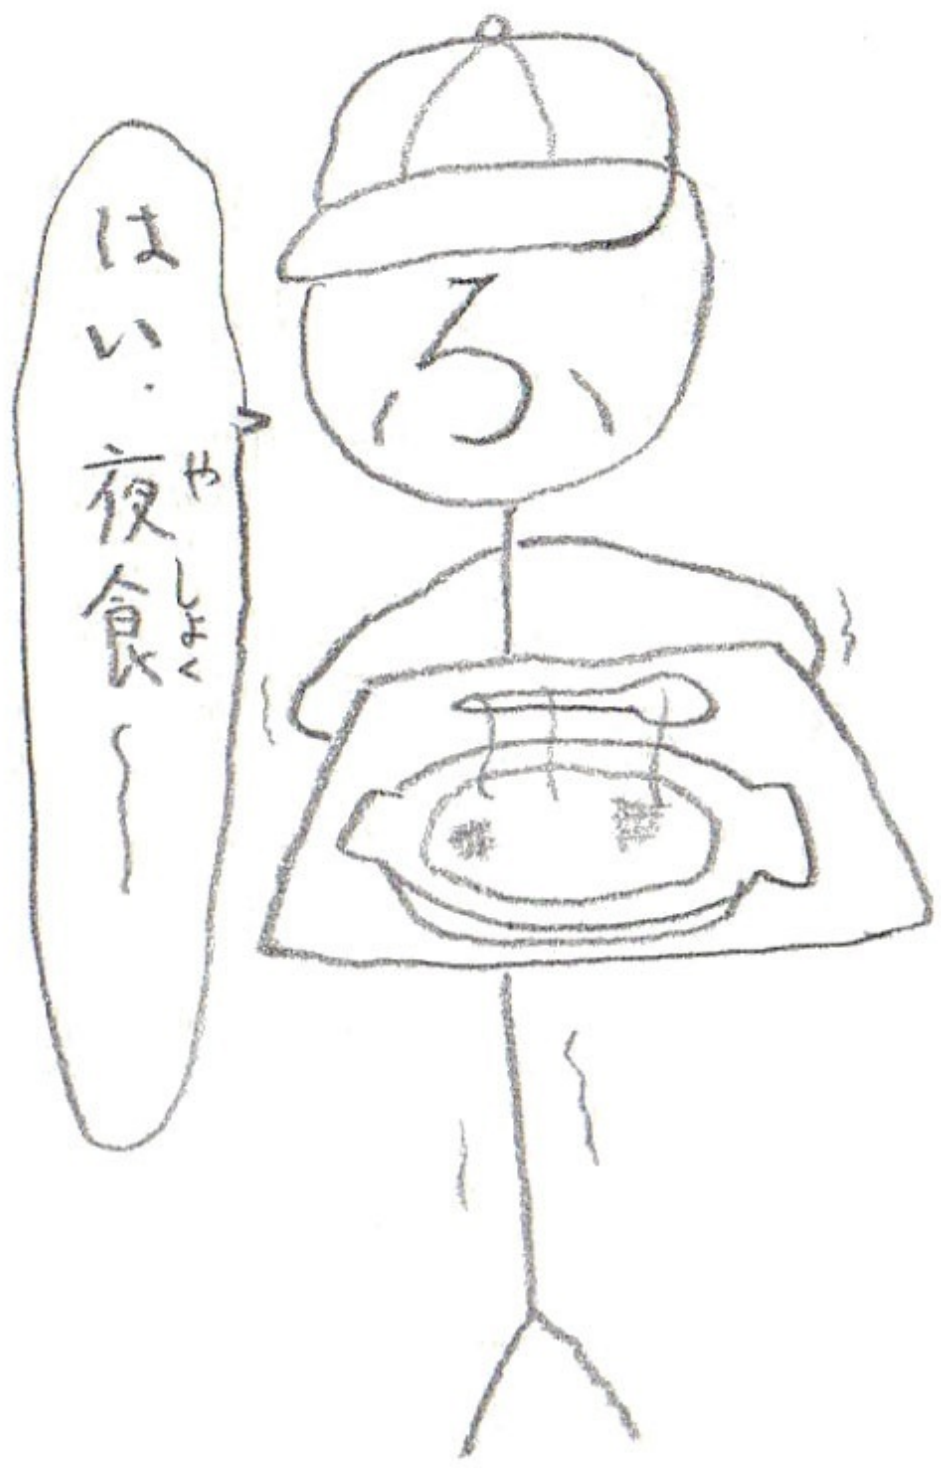 はい.夜食～
やしょく
ろ